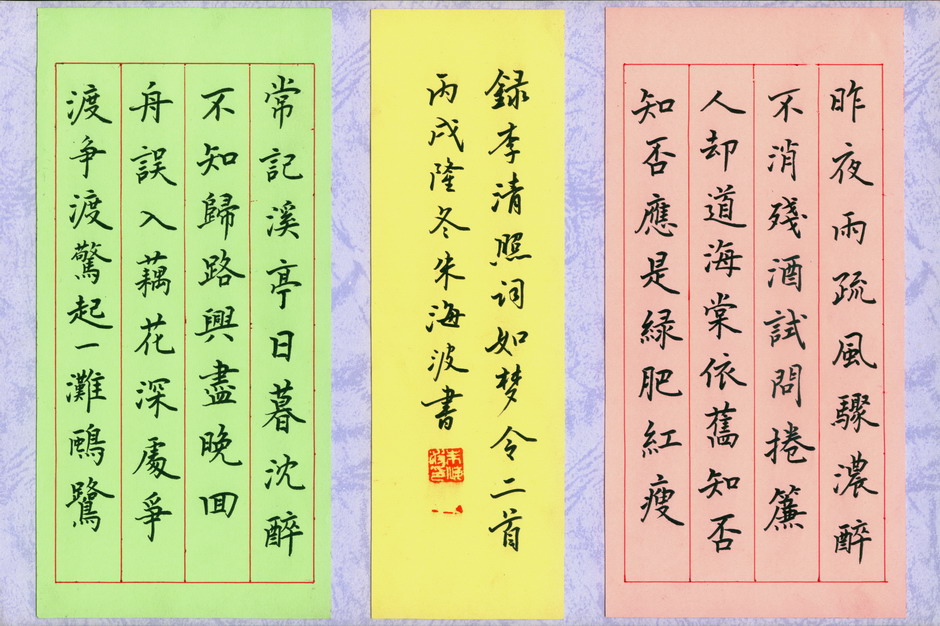 昨夜雨疏風驟濃醉
不消殘酒試問捲簾
人却道海棠依舊知否
知否應是緑肥紅瘦
録李清照词如梦令二首
丙戌隆冬朱海波書
常記溪亭日暮沈醉
不知歸路興盡晚回
舟誤入藕花深處爭
渡争渡驚起一灘鷗鷺